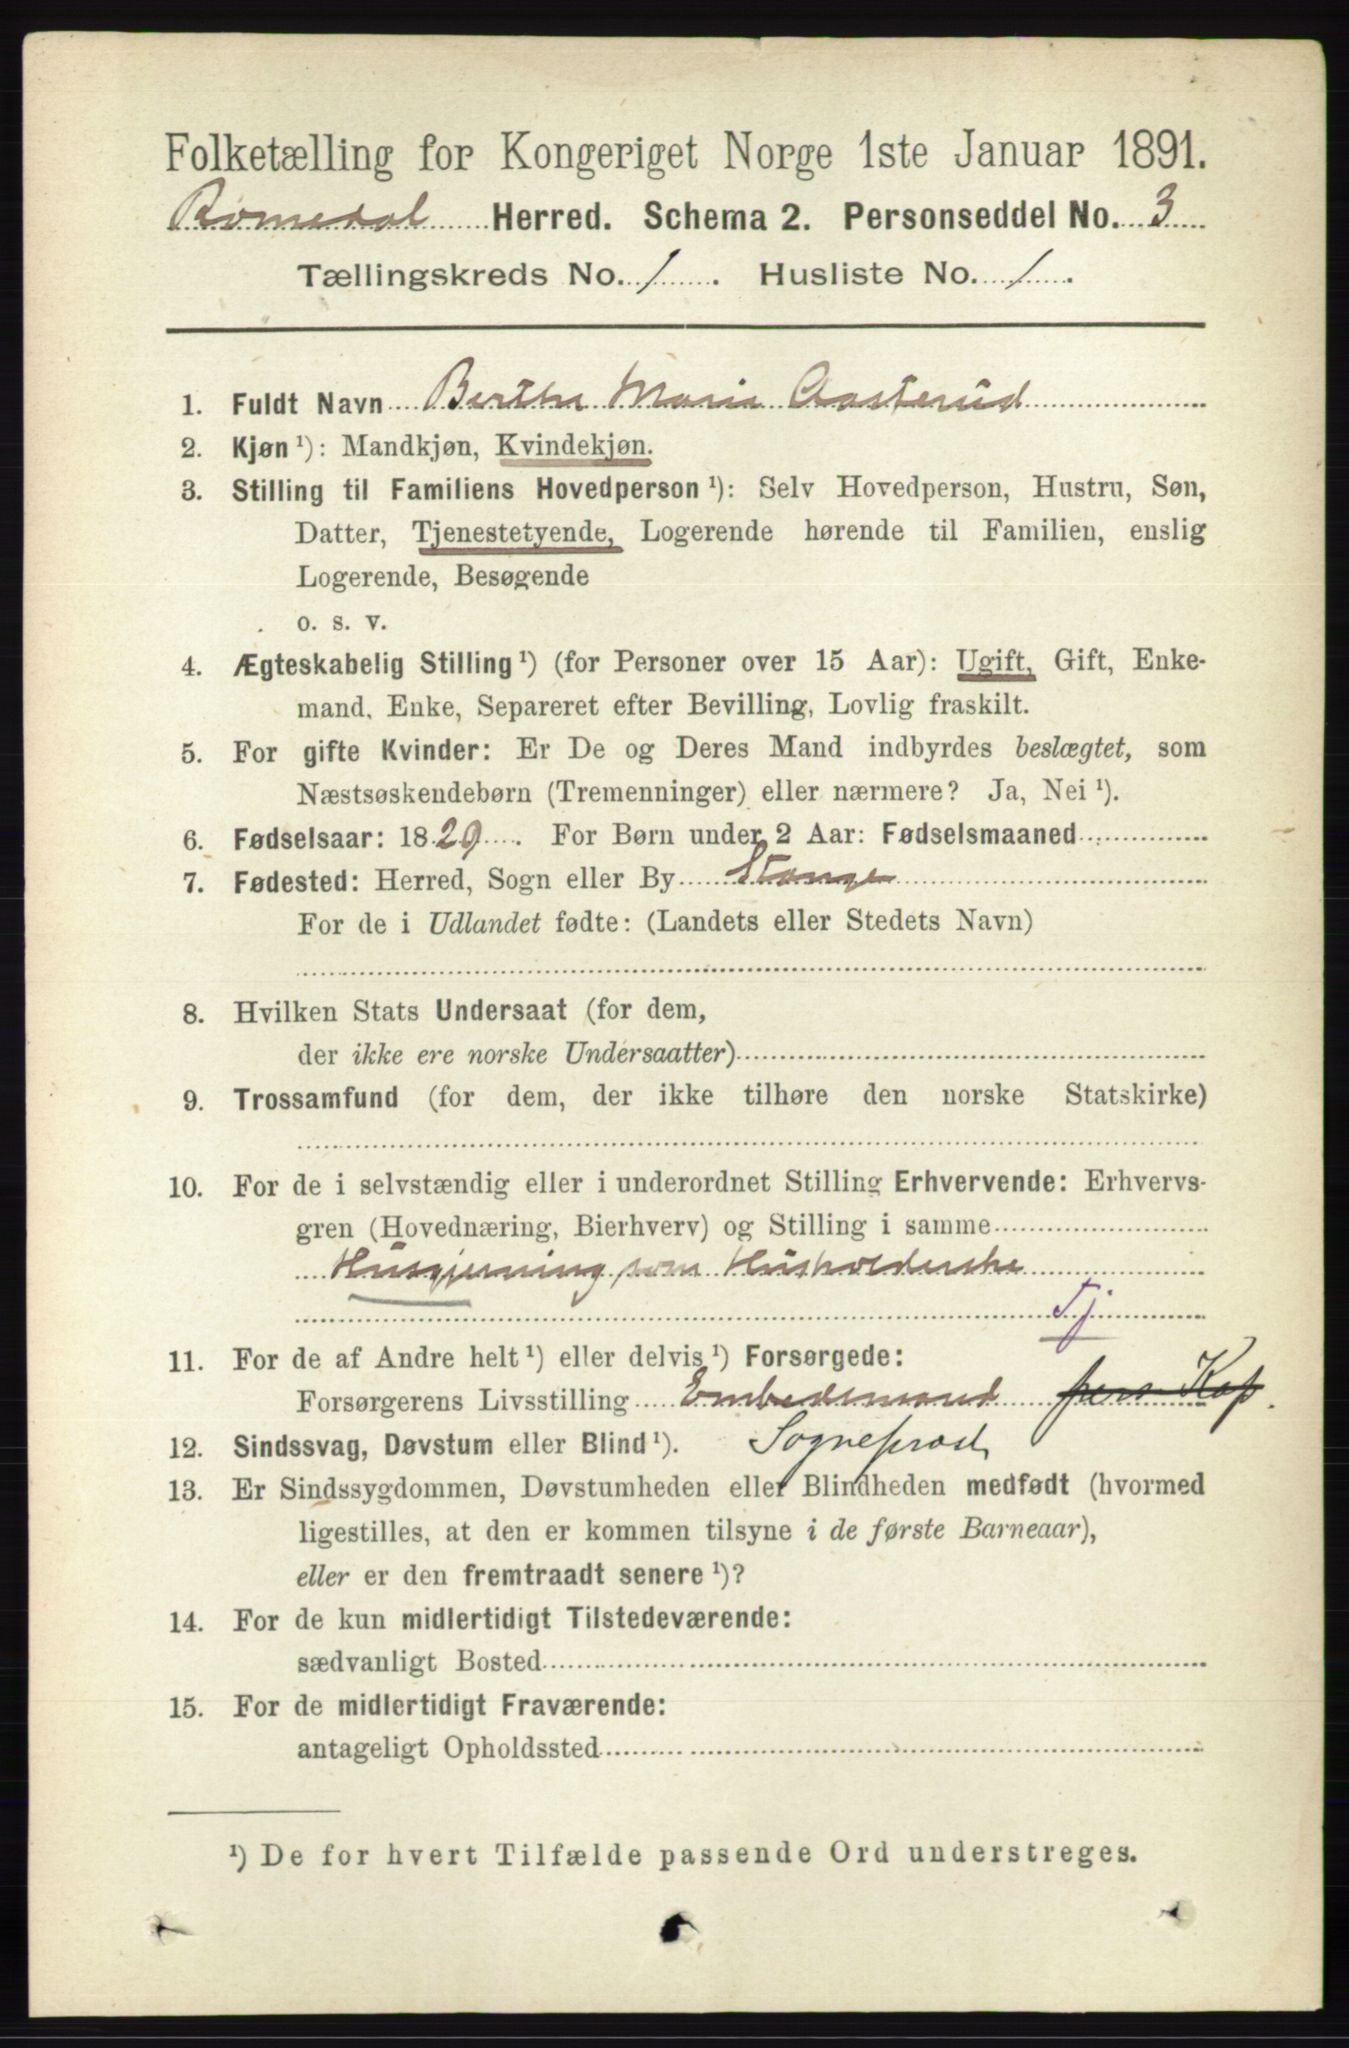 Folketælling for Kongeriget Norge 1ste Januar 1891.
Romedal Herred. Schema 2. Personseddel No. 3
Tællingskreds No. 1. Husliste No. 1.
1. Fuldt Navn Berthe Marie Aasterud
2. Kjøn ¹): Mandkjøn, Kvindekjøn.
3. Stilling til Familiens Hovedperson ¹): Selv Hovedperson, Hustru, Søn,
Datter, Tjenestetyende, Logerende hørende til Familien, enslig
Logerende, Besøgende
o. s. v.
4. Ægteskabelig Stilling ¹) (for Personer over 15 Aar): Ugift, Gift, Enke-
mand, Enke, Separeret efter Bevilling, Lovlig fraskilt.
5. For gifte Kvinder: Er De og Deres Mand indbyrdes beslægtet, som
Næstsøskendebørn (Tremenninger) eller nærmere? Ja, Nei ¹).
6. Fødselsaar: 1829. For Børn under 2 Aar: Fødselsmaaned
7. Fødested: Herred, Sogn eller By Stange
For de i Udlandet fødte: (Landets eller Stedets Navn)
8. Hvilken Stats Undersaat (for dem,
der ikke ere norske Undersaatter)
9. Trossamfund (for dem, der ikke tilhøre den norske Statskirke)
10. For de i selvstændig eller i underordnet Stilling Erhvervende: Erhvervs-
gren (Hovednæring, Bierhverv) og Stilling i samme
Husgjerning som Husholderske
Tj
11. For de af Andre helt ¹) eller delvis ¹) Forsørgede:
Forsørgerens Livsstilling Embedsmand pers. Kap.
12. Sindssvag, Døvstum eller Blind ¹). Sogneprest
13. Er Sindssygdommen, Døvstumheden eller Blindheden medfødt (hvormed
ligestilles, at den er kommen tilsyne i de første Barneaar),
eller er den fremtraadt senere ¹)?
14. For de kun midlertidigt Tilstedeværende:
sædvanligt Bosted
15. For de midlertidigt Fraværende:
antageligt Opholdssted
¹) De for hvert Tilfælde passende Ord understreges.